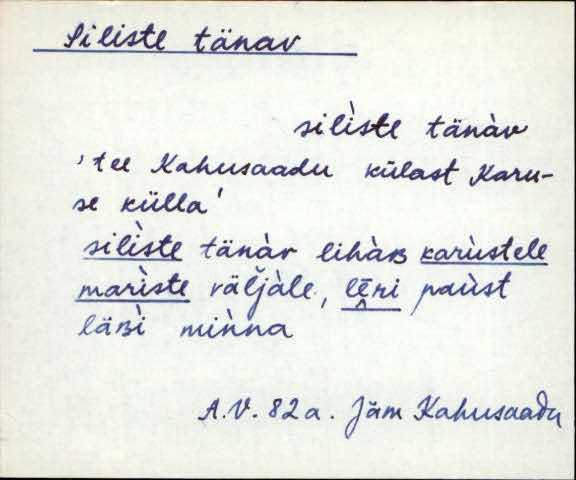 Siliste tänav
silìste tänàv
'tee Kahusaadu külast Karu-
se külla'
silìste tänàv lihàʙ karùstele
marìste väljàle, lēri paùst
läʙì minna
A.V. 82a. Jäm Kahusaadu